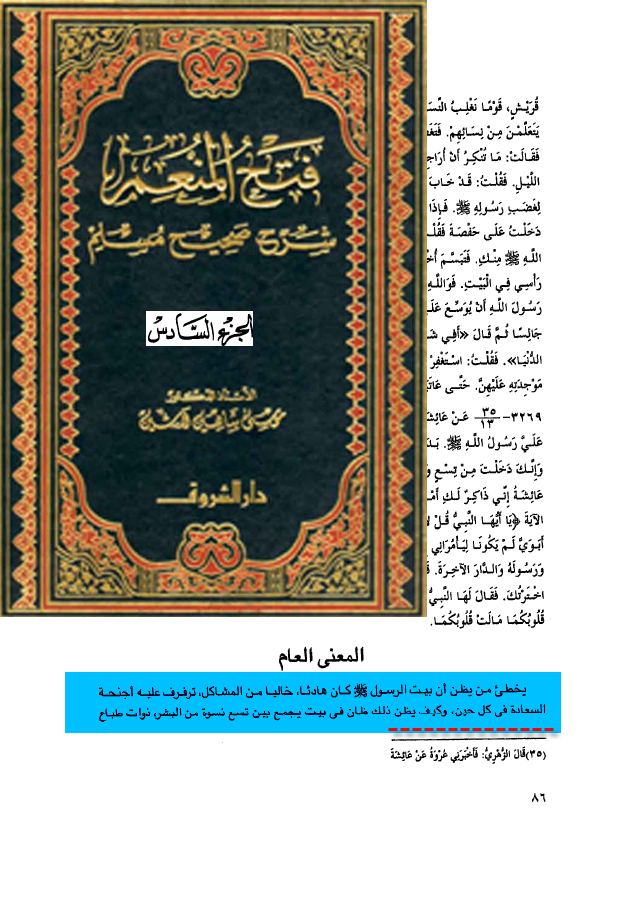 فتح المنعم
شرح صحيح مسلم
الجزء السادس
الأستاذ الدكتور
موسى شاهين لاشين
دار الشروق
قُرَيْشٍ، قَوْمًا نَغْلِبُ
يَتَعَلَّمْنَ مِنْ نِسَائِهِمْ.
فَقَالَتْ: مَا تُنْكِرُ أَنْ
اللَّيْلِ. فَقُلْتُ: قَدْ خَابَ
لِغَضَبِ رَسُولِهِ ﷺ. فَإِذَا
دَخَلْتُ عَلَى حَفْصَةَ
اللَّهِ ﷺ مِنْكِ. فَتَبَسَّمَ
رَأْسِي فِي الْبَيْتِ. فَوَاللَّهِ
رَسُولَ اللَّهِ أَنْ يُوَسِّعَ
جَالِسًا ثُمَّ قَالَ «أَفِي
الدُّنْيَا». فَقُلْتُ: اسْتَغْفِرْ
مَوْجِدَتِهِ عَلَيْهِنَّ. حَتَّى
٣٢٦٩- ٣٥/١٣ عَنْ
عَلَيَّ رَسُولُ اللَّهِ ﷺ.
وَإِنَّكَ دَخَلْتَ مِنْ تِسْعٍ
عَائِشَةُ إِنِّي ذَاكِرٌ لَكِ
الآيَةَ ﴿يَا أَيُّهَا النَّبِيُّ قُلْ
أَبَوَيَّ لَمْ يَكُونَا لِيَأْمُرَانِي
وَرَسُولَهُ وَالدَّارَ الآخِرَةَ.
اخْتَرْتُكَ. فَقَالَ لَهَا النَّبِيُّ
قُلُوبُكُمَا مَالَتْ قُلُوبُكُمَا.
المعنى العام
يخطئ من يظن أن بيت الرسول ﷺ كان هادئا، خاليا من المشاكل، ترفرف عليه أجنحة
السعادة فى كل حين، وكيف يظن ذلك ظان فى بيت يجمع بين تسع نسوة من البشر، ذوات طباع
(٣٥)قَالَ الزُّهْرِيُّ: فَأَخْبَرَنِي عُرْوَةُ عَنْ عَائِشَةَ
٨٦